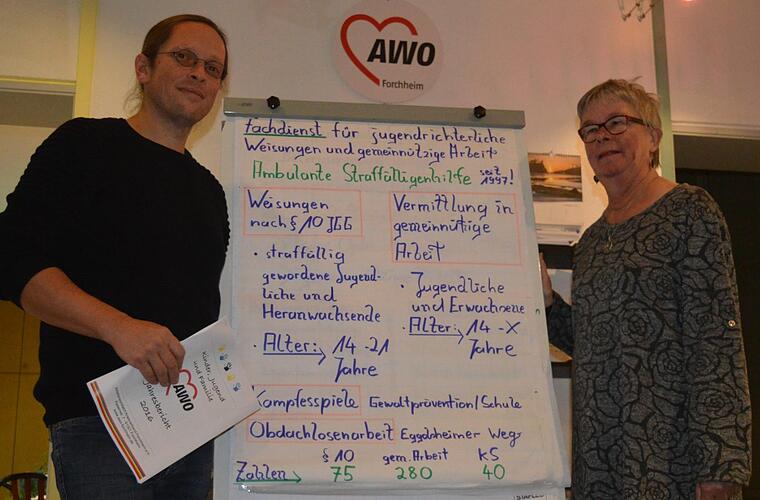 AWO
Forchheim
Fachdienst für jugendrichterliche
Weisungen und gemeinnützige Arbeit
Ambulante Straffälligenhilfe seit 1997!
Weisungen
nach § 10 JGG
• straffällig
gewordene Jugend-
liche und
Heranwachsende
• Alter: → 14 - 21
Jahre
Vermittlung in
gemeinnützige
Arbeit
• Jugendliche
und Erwachsene
• Alter: → 14 - X
Jahre
Kampfesspiele Gewaltprävention/Schule
Obdachlosenarbeit Eggolsheimer Weg
§ 10 gem. Arbeit KS
Zahlen → 75 280 40
Kinder, Jugend
und Familie
AWO
Jahresbericht
2016